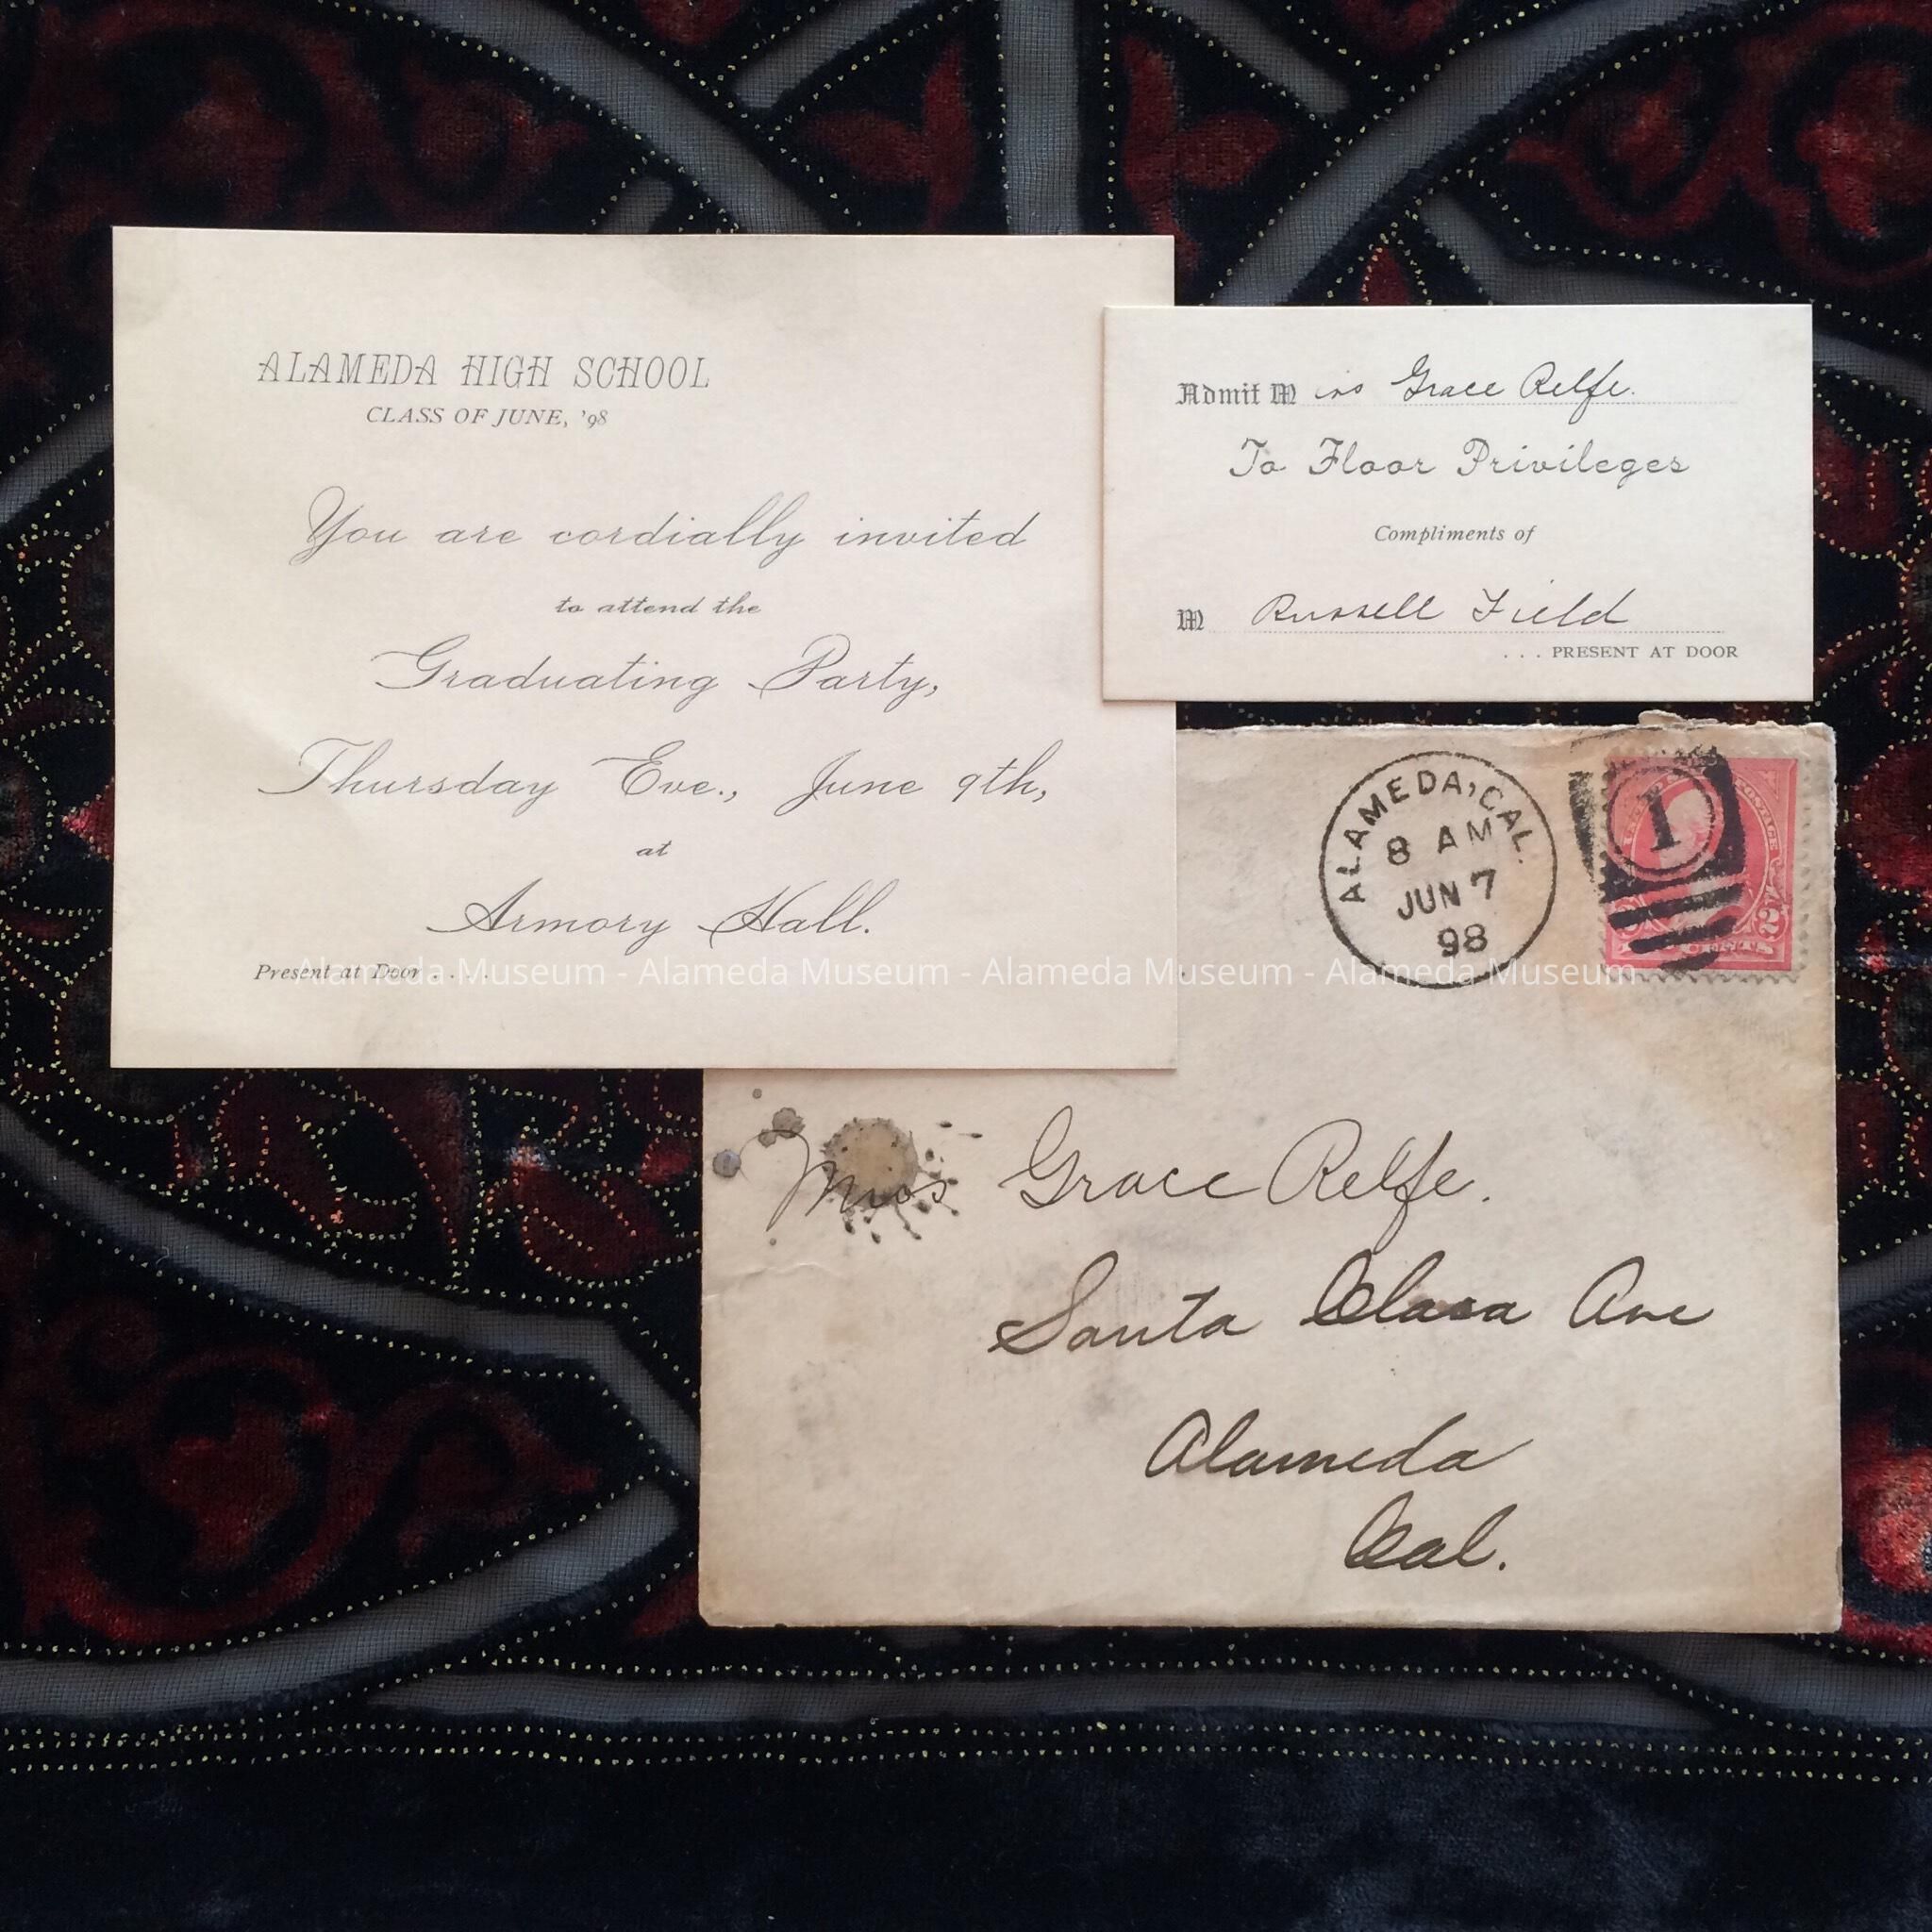 ALAMEDA HIGH SCHOOL
CLASS OF JUNE, '98
You are cordially invited
to attend the
Graduating Party,
Thursday Eve., June 9th,
at
Armory Hall.
Present at Door . . . .
Admit Miss Grace Relfe.
To Floor Privileges
Compliments of
M Russell Field
. . . PRESENT AT DOOR
ALAMEDA, CAL.
8 AM
JUN 7
98
1
2
CENTS
Alameda Museum - Alameda Museum - Alameda Museum - Alameda Museum
Miss Grace Relfe.
Santa Clara Ave
Alameda
Cal.